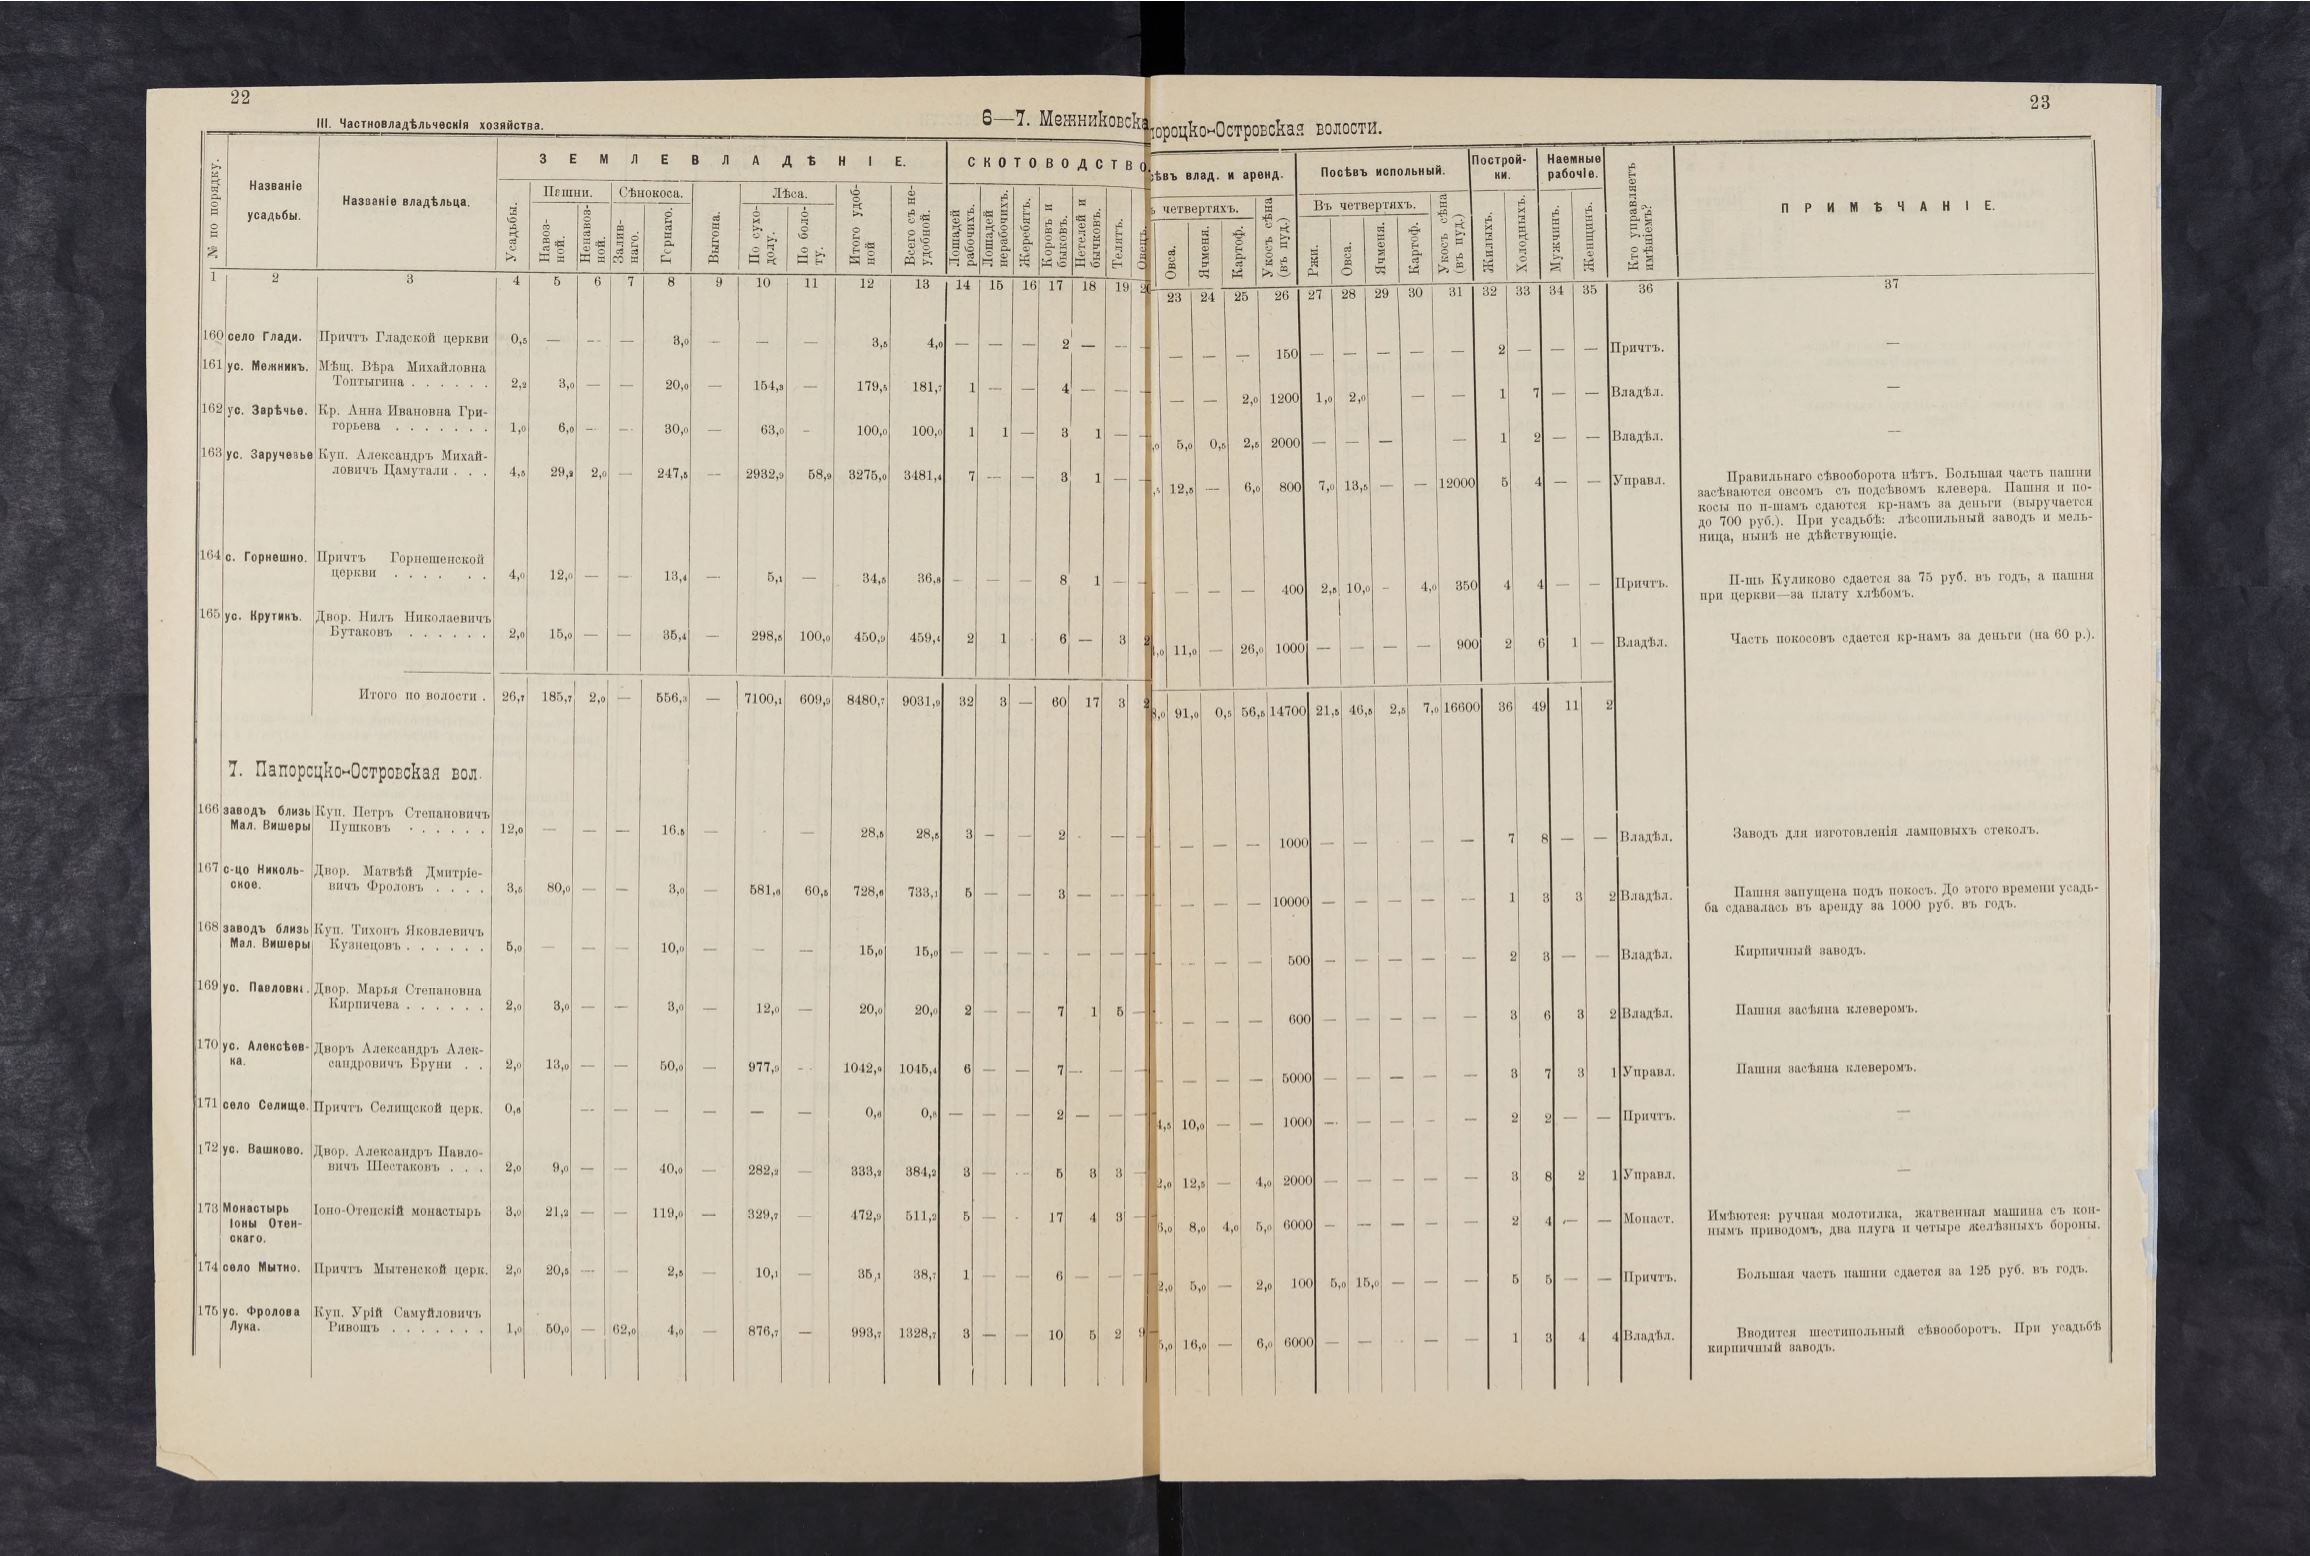 22
23
III. Частновладѣльческія хозяйства.
6—7. Межниковска
пороцко-Островская волости.
№ по порядку.
Названіе усадьбы.
Названіе владѣльца.
ЗЕМЛЕВЛАДѢНІЕ.
СКОТОВОДСТВО.
ѣвъ влад. и аренд.
Посѣвъ испольный.
Построй-
ки.
Наемные
рабочіе.
Кто управляетъ
имѣніемъ?
ПРИМѢЧАНІЕ.
Усадьбы.
Пашни.
Сѣнокоса.
Выгона.
Лѣса.
Итого удоб-
ной
Всего съ не-
удобной.
Навоз-
ной.
Ненавоз-
ной.
Залив-
наго.
Горнаго.
По сухо-
долу.
По боло-
ту.
Лошадей
рабочихъ.
Лошадей
нерабочихъ.
Жеребятъ.
Коровъ и
быковъ.
Нетелей и
бычковъ.
Телятъ.
Овецъ.
ъ четвертяхъ.
Овса.
Ячменя.
Картоф.
Укосъ сѣна
(въ пуд.)
Въ четвертяхъ.
Ржи.
Овса.
Ячменя.
Картоф.
Укосъ сѣна
(въ пуд.)
Жилыхъ.
Холодныхъ.
Мужчинъ.
Женщинъ.
1 2 3 4 5 6 7 8 9 10 11 12 13 14 15 16 17 18 19 2 23 24 25 26 27 28 29 30 31 32 33 34 35 36 37
160 село Глади. Причтъ Гладской церкви 0,5 — — — 3,0 — — — 3,5 4,0 — — — 2 — — — — — — 150 — — — — — 2 — — — Причтъ. —
161 ус. Межникъ. Мѣщ. Вѣра Михайловна
Топтыгина . . . . . . 2,2 3,0 — — 20,0 — 154,3 — 179,5 181,7 1 — — 4 — — — — — 2,0 1200 1,0 2,0 — — 1 7 — — Владѣл. —
162 ус. Зарѣчье. Кр. Анна Ивановна Гри-
горьева . . . . . . . 1,0 6,0 — — 30,0 — 63,0 – 100,0 100,0 1 1 — 3 1 — — ,0 5,0 0,5 2,5 2000 — — — — 1 2 — — Владѣл. —
163 ус. Заручевье Куп. Александръ Михай-
ловичъ Цамутали . . . 4,5 29,2 2,0 — 247,5 — 2932,9 58,9 3275,0 3481,4 7 — — 3 1 — — ,5 12,5 — 6,0 800 7,0 13,5 — — 12000 5 4 — — Управл.
Правильнаго сѣвооборота нѣтъ. Большая часть пашни
засѣваются овсомъ съ подсѣвомъ клевера. Пашня и по-
косы по п-шамъ сдаются кр-намъ за деньги (выручается
до 700 руб.). При усадьбѣ: лѣсопильный заводъ и мель-
ница, нынѣ не дѣйствующіе.
164 с. Горнешно. Причтъ Горнешенской
церкви . . . . . . 4,0 12,0 — — 13,4 — 5,1 — 34,5 36,8 – — — 8 1 — — — — — 400 2,5 10,0 – 4,0 350 4 4 — — Причтъ.
П-шь Куликово сдается за 75 руб. въ годъ, а пашня
при церкви—за плату хлѣбомъ.
165 ус. Крутикъ. Двор. Нилъ Николаевичъ
Бутаковъ . . . . . . 2,0 15,0 — — 35,4 — 298,5 100,0 450,9 459,4 2 1 6 — 3 2 ,0 11,0 — 26,0 1000 — — — — 900 2 6 1 — Владѣл.
Часть покосовъ сдается кр-намъ за деньги (на 60 р.).
Итого по волости . 26,7 185,7 2,0 — 556,3 — 7100,1 609,9 8480,7 9031,9 32 3 — 60 17 3 2 8,0 91,0 0,5 56,5 14700 21,5 46,5 2,5 7,0 16600 36 49 11 2
7. Папороцко-Островская вол.
166 заводъ близь
Мал. Вишеры Куп. Петръ Степановичъ
Пушковъ . . . . . . 12,0 — — — 16.5 — — 28,5 28,5 3 – — 2 — — — — — 1000 — — — — 7 8 — — Владѣл. Заводъ для изготовленія ламповыхъ стеколъ.
167 с-цо Николь-
ское. Двор. Матвѣй Дмитріе-
вичъ Фроловъ . . . . 3,5 80,0 — — 3,0 — 581,6 60,5 728,6 733,1 5 — — 3 — — — — — — 10000 — — — — — 1 3 3 2 Владѣл.
Пашня запущена подъ покосъ. До этого времени усадь-
ба сдавалась въ аренду за 1000 руб. въ годъ.
168 заводъ близь
Мал. Вишеры Куп. Тихонъ Яковлевичъ
Кузнецовъ . . . . . . 5,0 — — — 10,0 — — — 15,0 15,0 — — — – — — — — — — 500 — — — — — 2 3 — — Владѣл. Кирпичный заводъ.
169 ус. Павловка. Двор. Марья Степановна
Кирпичева . . . . . . 2,0 3,0 — — 3,0 — 12,0 — 20,0 20,0 2 — — 7 1 5 — — — — 600 — — — — — 3 6 3 2 Владѣл. Пашня засѣяна клеверомъ.
170 ус. Алексѣев-
ка. Дворъ Александръ Алек-
сандровичъ Бруни . . 2,0 13,0 — — 50,0 — 977,9 — 1042,9 1045,4 6 — — 7 — — — — — — 5000 — — — — — 3 7 3 1 Управл. Пашня засѣяна клеверомъ.
171 село Селище. Причтъ Селищской церк. 0,6 — — — — — — 0,6 0,8 — — — 2 — — — 4,5 10,0 — — 1000 — — — – — 2 2 — — Причтъ. —
172 ус. Вашково. Двор. Александръ Павло-
вичъ Шестаковъ . . . 2,0 9,0 — — 40,0 — 282,2 — 333,2 384,2 3 — – 5 3 3 — 2,0 12,5 — 4,0 2000 — — — — — 3 8 2 1 Управл. —
173 Монастырь
Іоны Отен-
скаго. Іоно-Отенскій монастырь 3,0 21,2 — — 119,0 — 329,7 — 472,9 511,2 5 — - 17 4 3 — 6,0 8,0 4,0 5,0 6000 — — — — — 2 4 — — Монаст.
Имѣются: ручная молотилка, жатвенная машина съ кон-
нымъ приводомъ, два плуга и четыре желѣзныхъ бороны.
174 село Мытно. Причтъ Мытенской церк. 2,0 20,5 — — 2,5 — 10,1 — 35,1 38,7 1 — — 6 — — — 2,0 5,0 — 2,0 100 5,0 15,0 — — — 5 5 — — Причтъ. Большая часть пашни сдается за 125 руб. въ годъ.
175 ус. Фролова
Лука. Куп. Урій Самуйловичъ
Ривошъ . . . . . . . 1,0 50,0 — 62,0 4,0 — 876,7 — 993,7 1328,7 3 — — 10 5 2 9 5,0 16,0 — 6,0 6000 — — — — — 1 3 4 4 Владѣл.
Вводится шестипольный сѣвооборотъ. При усадьбѣ
кирпичный заводъ.